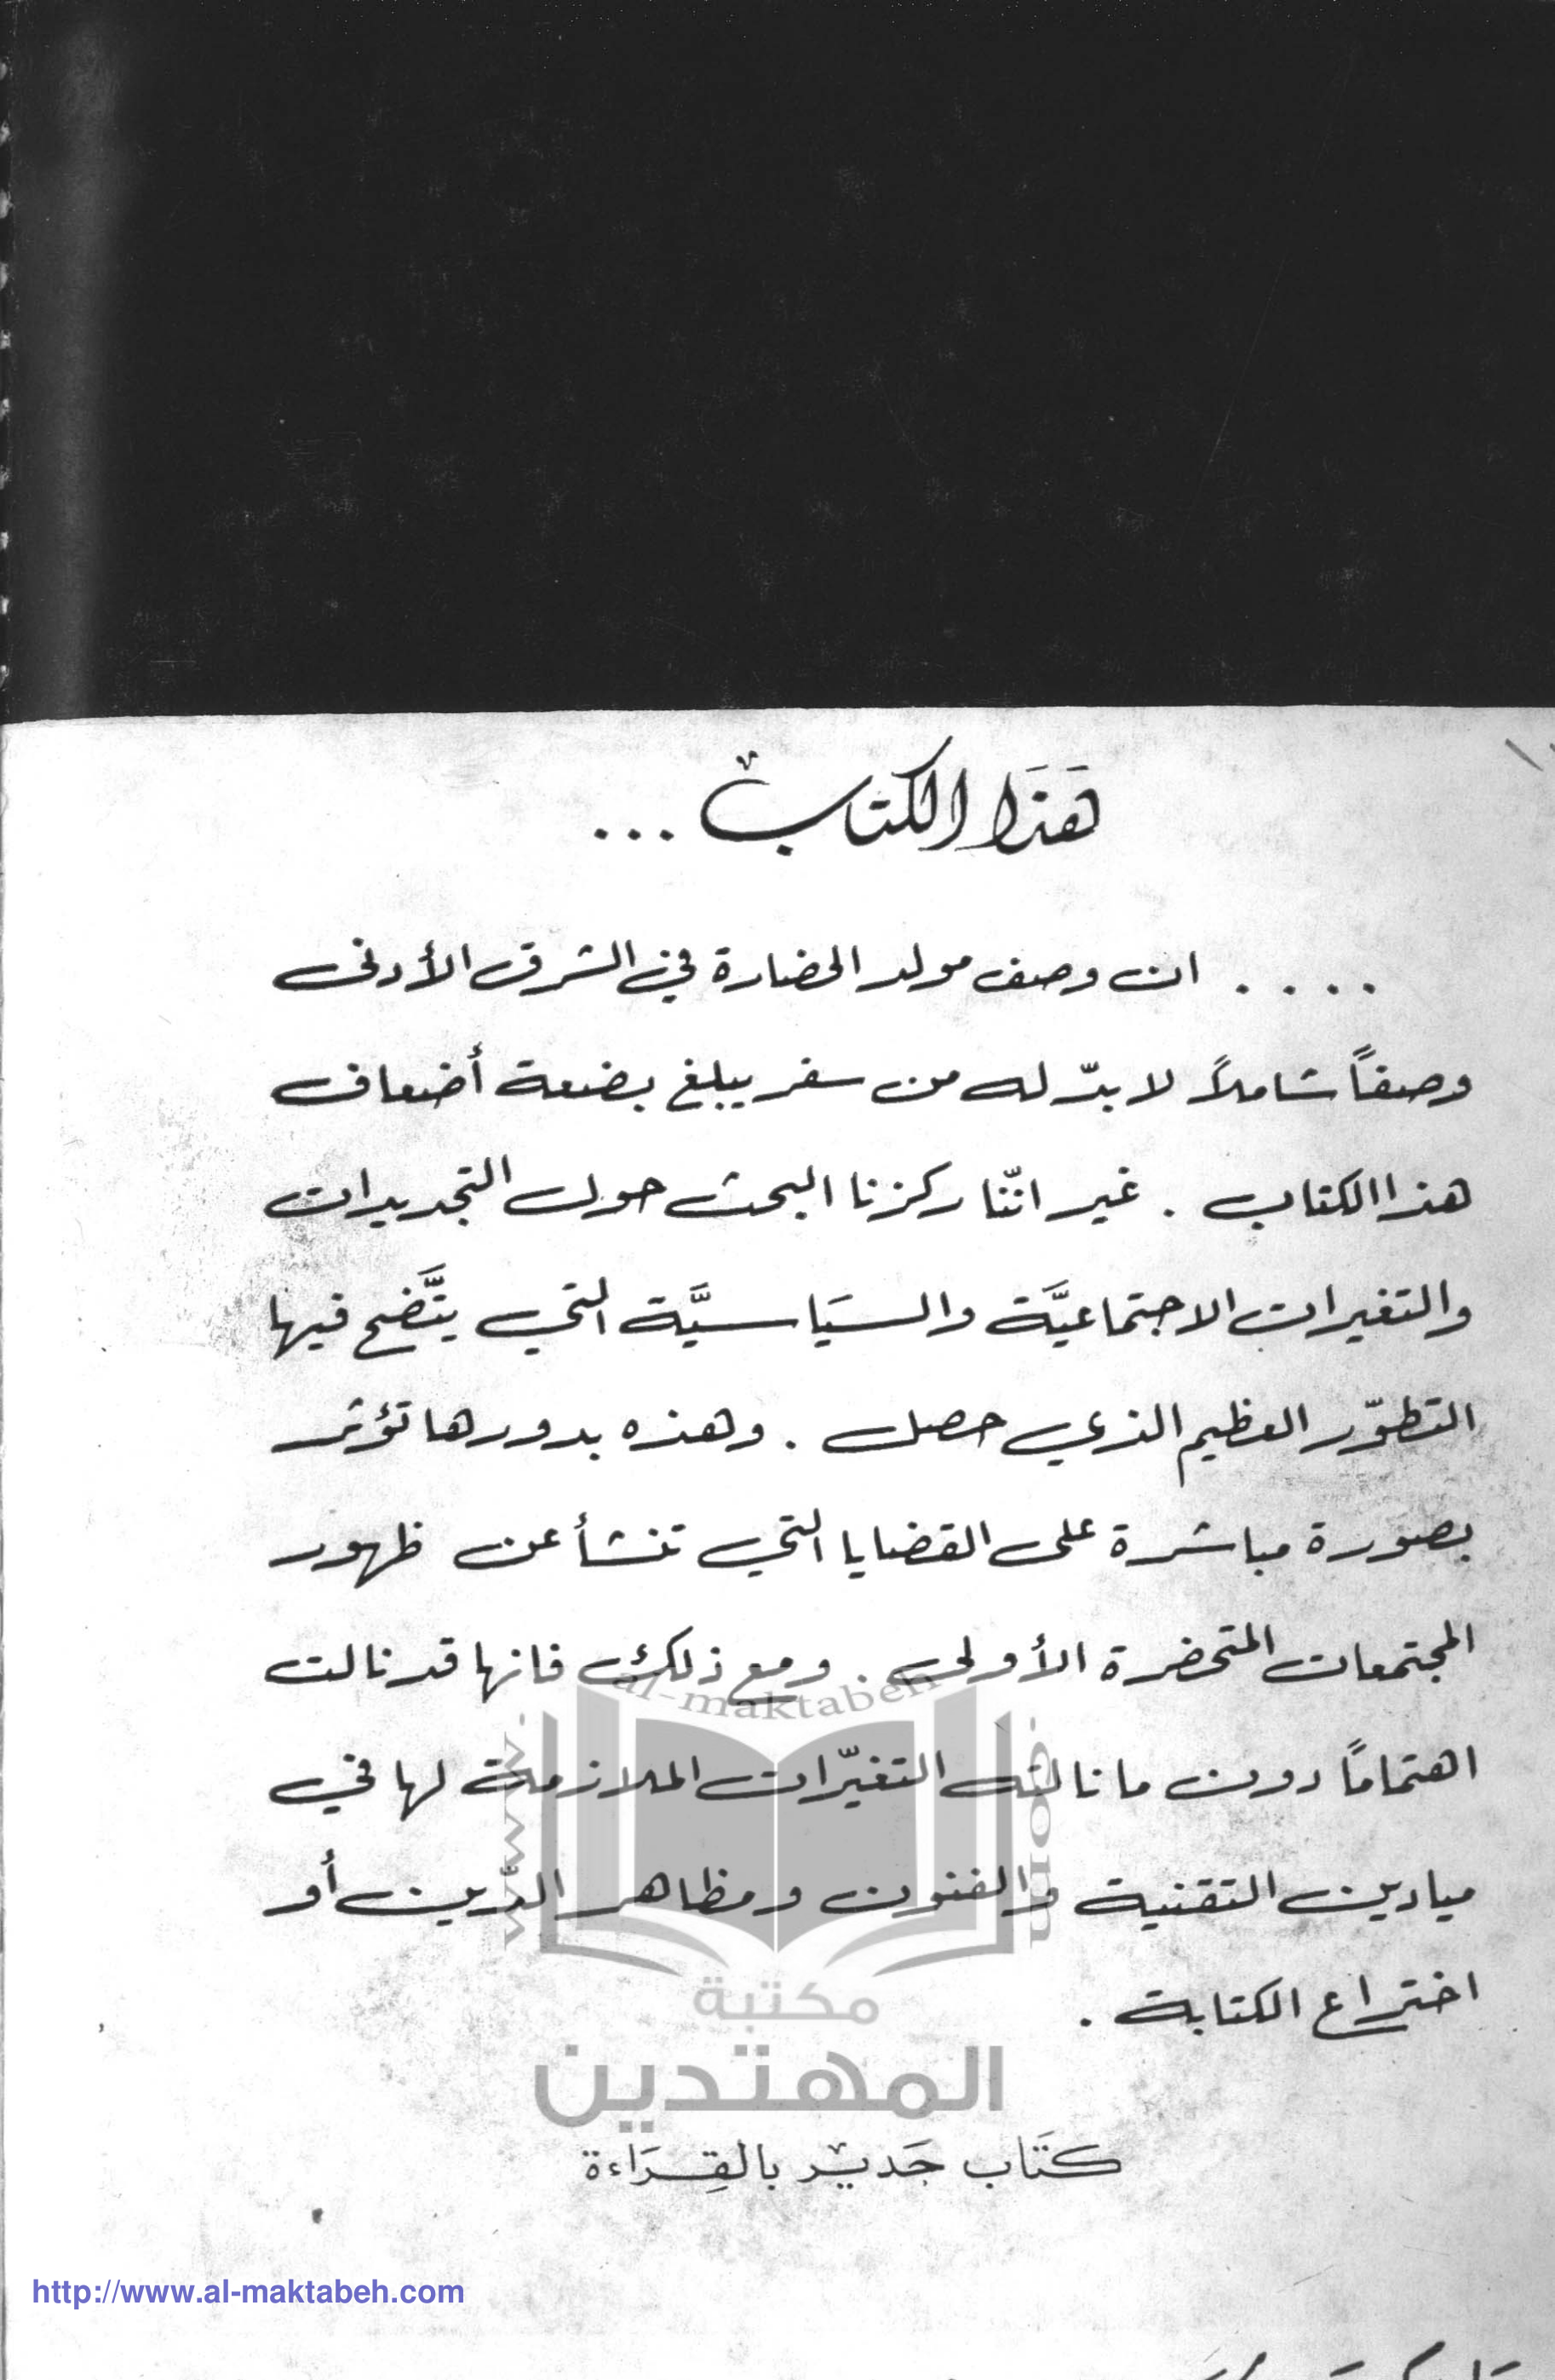 هَذَا الكتاب ...
.... ان وصف مولد الحضارة في الشرق الأدنى
وصفاً شاملاً لا بدّ له من سفر يبلغ بضعة أضعاف
هذا الكتاب . غير انّنا ركزنا البحث حول التجديدات
والتغيرات الاجتماعيَّة والسيَاسيَّة التي يتَّضح فيها
التطوّر العظيم الذي حصل . وهذه بدورها تؤثر
بصورة مباشرة على القضايا التي تنشأ عن ظهور
المجتمعات المتحضرة الأولى . ومع ذلك فانها قد نالت
اهتماماً دون ما نالته التغيّرات الملازمة لها في
ميادين التقنية والفنون ومظاهر الدّين أو
اختراع الكتابة .
www.al-maktabeh.com
مكتبة
المهتدين
كتَاب جَدير بالقِرَاءة
http://www.al-maktabeh.com